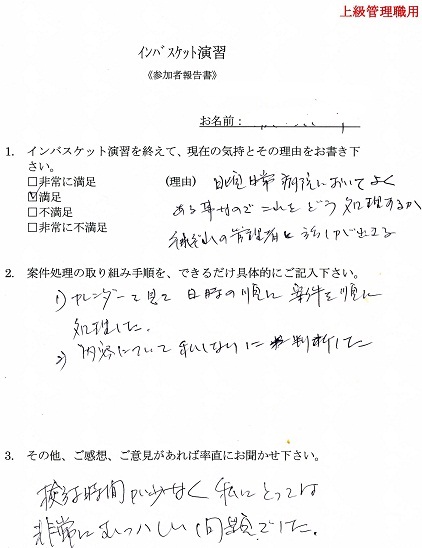 上級管理職用
インバスケット演習
《参加者報告書》
お名前：
1. インバスケット演習を終えて、現在の気持とその理由をお書き下
さい。
□非常に満足 (理由) 日頃日常病院においてよく
☑満足
ある事なのでこれをどう処理するか
□不満足
□非常に不満足 の管理者と話しが出来る
2. 案件処理の取り組み手順を、できるだけ具体的にご記入下さい。
1) カレンダーを見て日時の順に案件を順に
処理した。
2) 内容について私しなりに判断した
3. その他、ご感想、ご意見があれば率直にお聞かせ下さい。
検討時間が少なく私にとっては
非常にむつかしい問題でした。